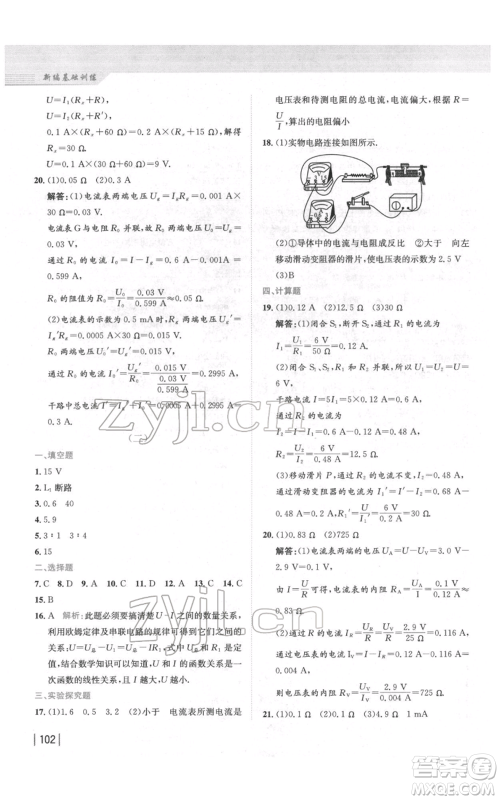 新编基础训练
U=I₁(Rₓ+R),
U=I₂(Rₓ+R′),
0.1 A×(Rₓ+35 Ω)=0.2 A×(Rₓ+10 Ω), 解得
Rₓ=15 Ω,
U=0.1 A×(15 Ω+35 Ω)=5 V.
20. (1)0.05 Ω (2)0.3 A
解答:(1)电流表两端电压 Ug=IgRg=0.0005 A
×30 Ω=0.015 V.
电流表 G 与电阻 R₀ 并联,故 U₀=Ug=0.03 V.
通过 R₀ 的电流 I₀=I-Ig=0.6 A-0.001 A=
0.599 A,
R₀ 的阻值 R₀=U₀/I₀=0.03 V/0.599 A≈0.05 Ω.
(2)电流表的示数为 0.5 mA 时,
Ug′=Ig′Rg=0.0005 A×30 Ω=0.015 V.
通过 R₀ 的电流 I₀′=Ug′/R₀=0.015 V/(0.03 V/0.599 A)=0.2995 A,
干路中总电流 I′=Ig′+I₀′=0.0005 A+0.2995 A
=0.3 A.
一、填空题
1. 15 V
2. L₁ 断路
3. 0.6 40
4. 5.9
5. 3∶1 3∶4
6. 15
二、选择题
7. C 8. D 9. A 10. C 11. D 12. C 13. C 14. D
15. B
16. A 解析:此题必须要搞清楚 U-I 之间的数量关系,
利用欧姆定律及串联电路的电压关系,可得它们的
关系为:U=U总-U₁=U总-IR₁,因为 U总 与 R₁
是一定的,常量,因此,电压 U 和 I 的函数关系为一次
函数的线性关系,且 I 越大,U 越小.
三、实验探究题
17. (1)1.6 0.5 3.2 (2)小于 电流表所测电流是
电压表和待测电阻的总电流,电流偏大,根据 R=
U/I,故测出的电阻偏小
18. (1)实物电路连接如图所示.
(2)①导体中的电流与电阻成反比 ②大于 向左
移动滑动变阻器的滑片,使电压表的示数为 2.5 V
(3)B
四、计算题
19. (1)0.12 A (2)12.5 Ω (3)30 Ω
解答:(1)闭合 S₁,断开 S₂,通过 R₁ 的电流为
I₁=U/R₁=6 V/50 Ω=0.12 A.
(2)闭合 S₁、S₂,R₁ 和 R₂ 并联,所以 U₁=U₂=U=6 V,
干路电流 I=5I₁=5×0.12 A=0.6 A,
通过 R₂ 的电流 I₂=I-I₁=0.6 A-0.12 A=0.48 A,
R₂=U/I₂=6 V/0.48 A=12.5 Ω.
(3)移动滑片 P,通过 R₂ 的电流不变,为 0.48 A,通
过滑动变阻器的电流 I₁′=I′-I₂=0.68 A-0.48 A
=0.2 A,R₁′=U/I₁′=6 V/0.2 A=30 Ω.
20. (1)0.83 Ω (2)725 Ω
解答:(1)电流表两端的电压 UA=U-UR=3 V-
2.9 V=0.1 V,
由 I=U/R 可知,电流表的电阻 RA=UA/I=0.1 V/0.12 A≈
0.83 Ω.
(2)通过 R 的电流 IR=UR/R=2.9 V/25 Ω=0.116 A,
通过电压表的电流 IV=I-IR=0.12 A-0.116 A=
0.004 A,
则电压表的电阻 RV=UV/IV=2.9 V/0.004 A=725 Ω.
21. (1)0.1 Ω (2)0.1 Ω (3)0.1 Ω 1 mA
102
zyjl.cn
zyjl.cn
作业精灵